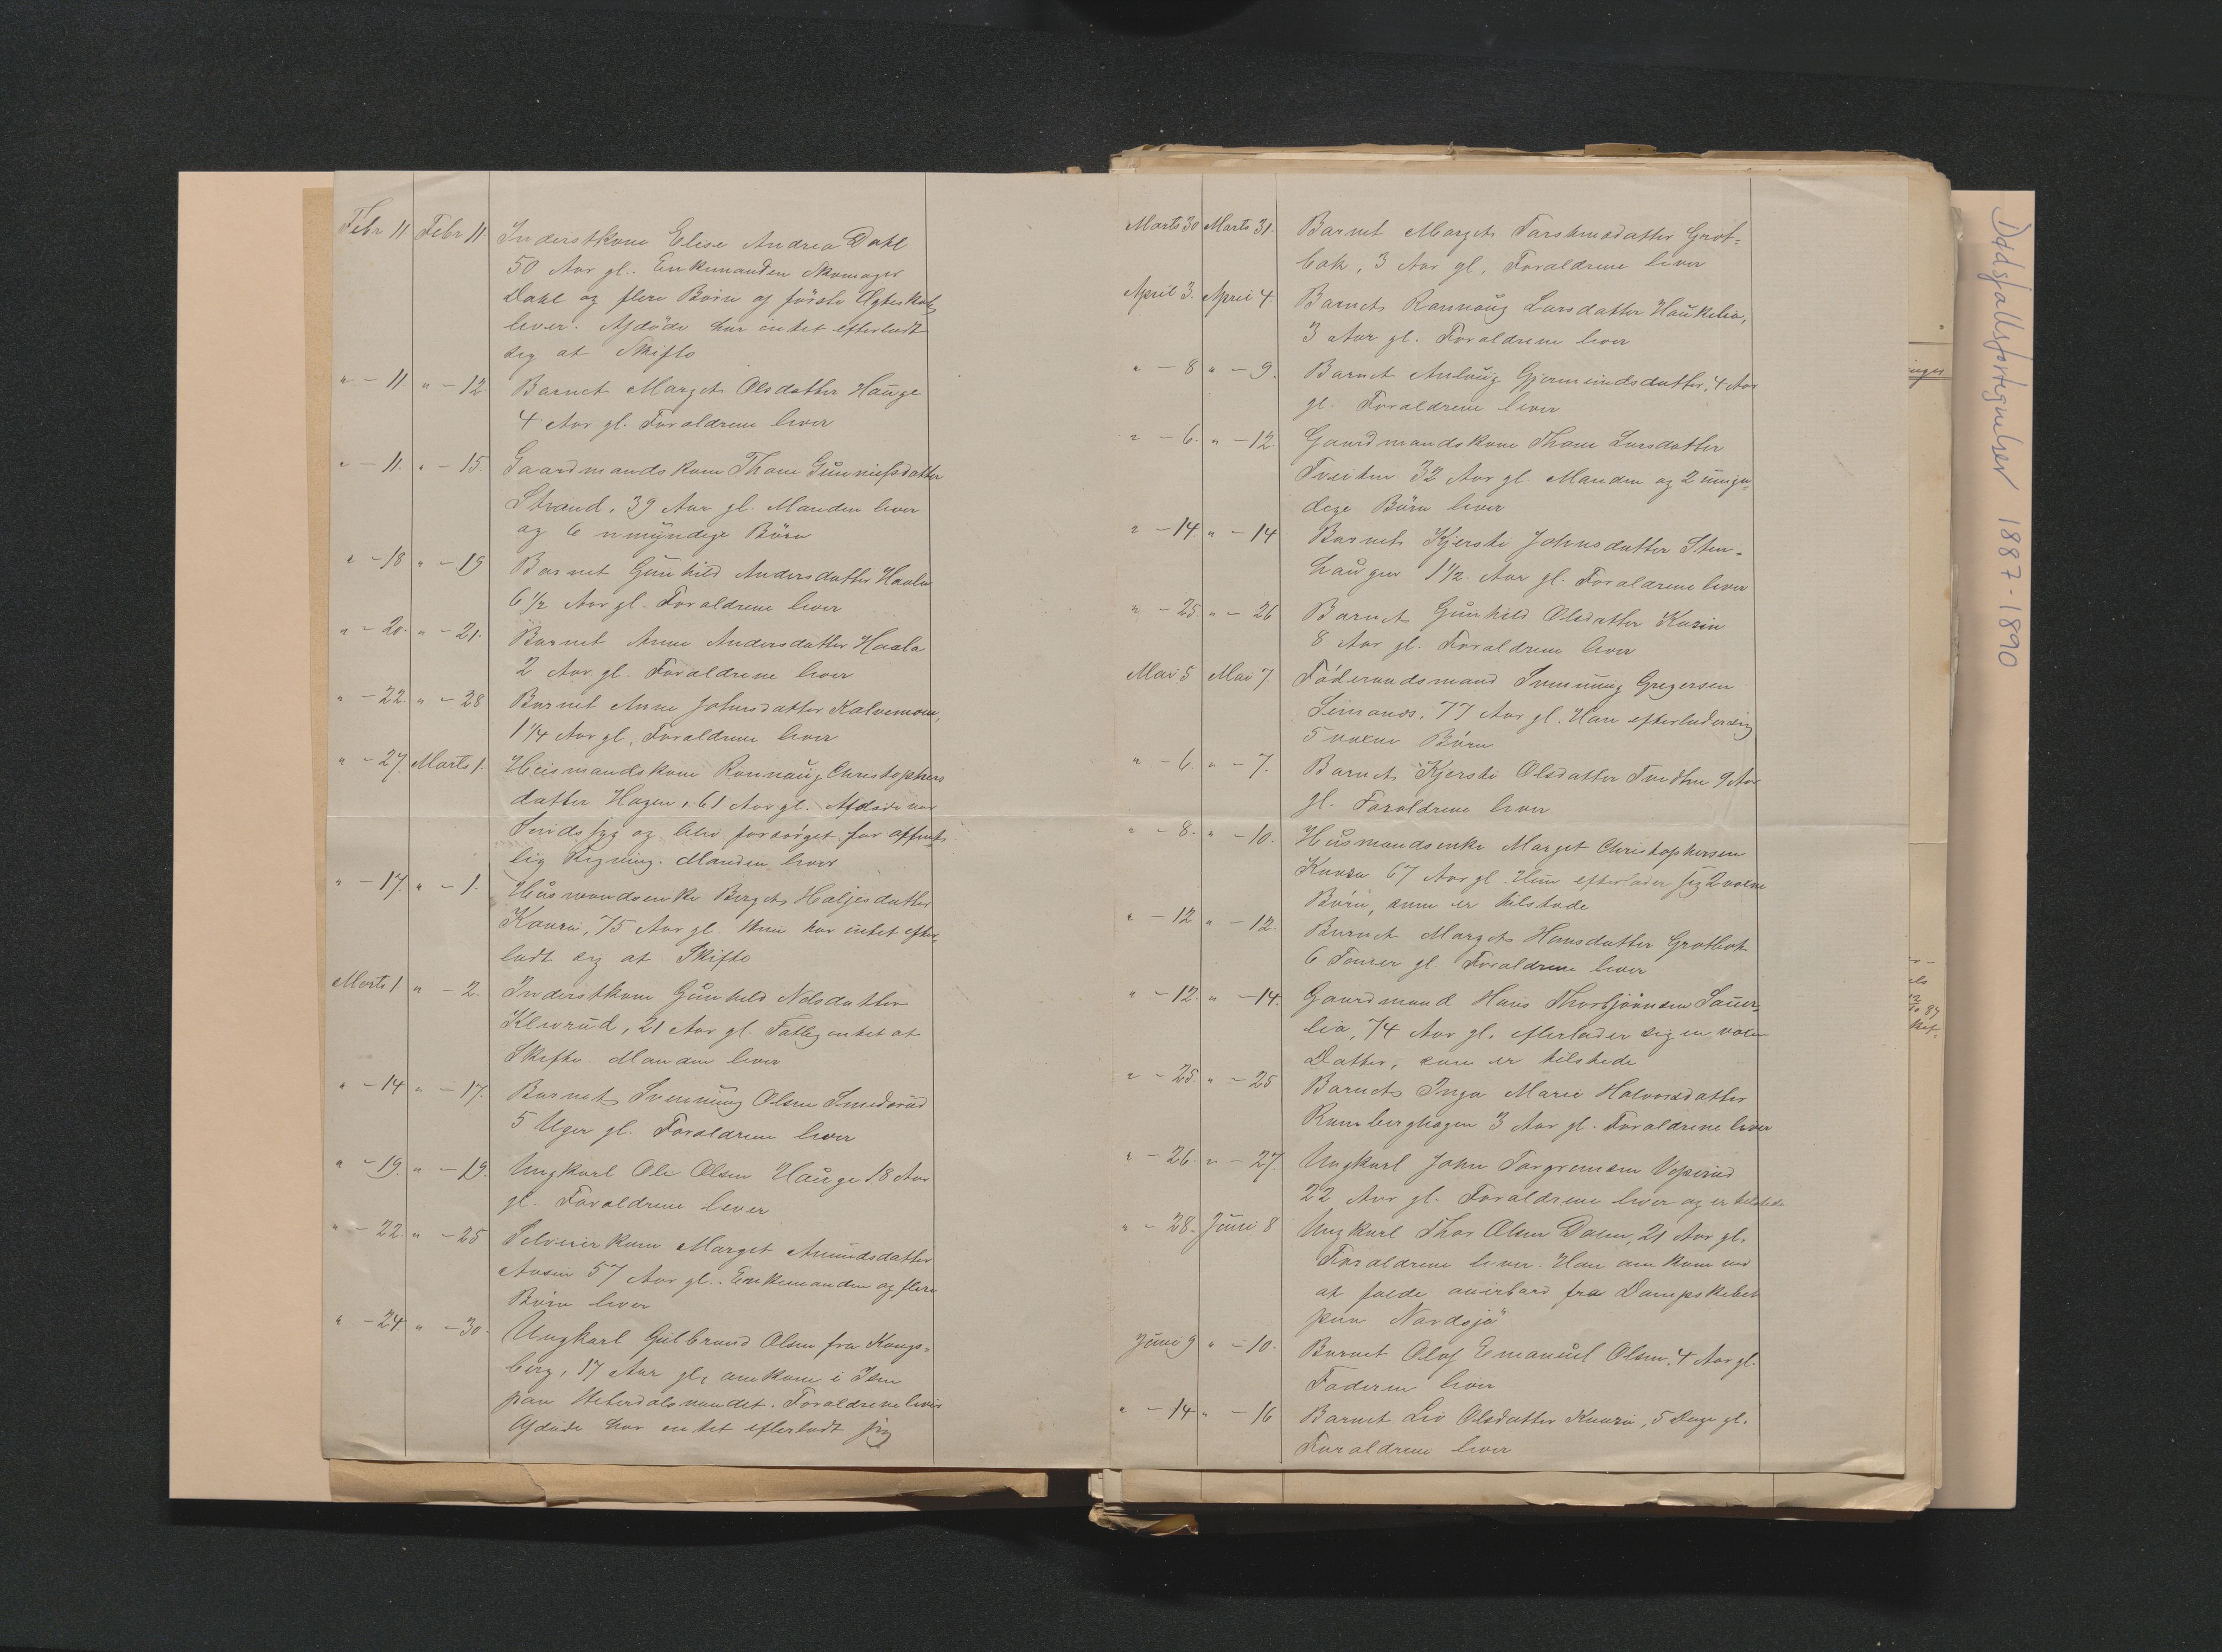 Febr 11 Febr 11 Inderstkone Elise Andrea Dahl
50 Aar gl. Enkemanden Skomager
Dahl og flere Børn af første Ægteskab
lever. Afdøde har intet efterladt
sig at Skifte
" - 11 " - 12 Barnet Margit Olsdatter Hauge
4 Aar gl. Forældrene lever
" - 11. " - 15. Gaardmandskone Thone Gunniefsdatter
Strand, 39 Aar gl. Manden lever
og 6 umyndige Børn
" - 18 " - 19 Barnet Gunhild Andersdatter Haala
6 1/2 Aar gl. Forældrene lever
" - 20. " - 21. Barnet Anne Andersdatter Haala
2 Aar gl. Forældrene lever
" - 22. " - 28 Barnet Anne Johnsdatter Kalvemoen,
1 1/4 Aar gl. Forældrene lever
" - 27. Marts 1. Husmandskone Ronnaug Christophers
datter Hagen, 61 Aar gl. Afdøde var
Sindssyg og blev forsørget for offent-
lig Regning. Manden lever
" - 17. " - 1. Husmandsenke Bergit Haljesdatter
Kaasa, 75 Aar gl. Hun har intet efter-
ladt sig at Skifte
Marts 1 " - 2. Inderstkone Gunhild Nelsdatter
Kleivrud, 21 Aar gl. Fattig intet at
Skifte. Manden lever
" - 14 " - 17. Barnet Svenning Olsen Smedsrud
5 Uger gl. Forældrene lever
" - 19. " - 19. Ungkarl Ole Olsen Hauge 18 Aar
gl. Forældrene lever
" - 22. " - 25 Selveierkone Marget Amundsdatter
Aasen 57 Aar gl. Enkemanden og flere
Børn lever
" - 24 " - 30. Ungkarl Gulbrand Olsen fra Kongs-
berg, 17 Aar gl, omkom i Isen
paa Heterdalsvandet. Forældrene lever
Afdøde har intet efterladt sig
Marts 30 Marts 31. Barnet Margit Tarshensdatter Grot-
bæk, 3 Aar gl, Forældrene lever
April 3. April 4. Barnet Rannaug Larsdatter Haukelia,
3 Aar gl. Forældrene lever
" - 8 " - 9. Barnet Anlaug Gjermundsdatter, 4 Aar
gl. Forældrene lever
" - 6. " - 12. Gaardmandskone Thone Larsdatter
Tveiten 32 Aar gl. Manden og 2 umyn-
dige Børn lever
" - 14. " - 14 Barnet Kjersti Johnsdatter Sten-
haugen 1 1/2 Aar gl. Forældrene lever
" - 25. " - 26 Barnet Gunhild Olsdatter Kasin
8 Aar gl. Forældrene lever
Mai 5 Mai 7. Føderaadsmand Svenning Gregersen
77 Aar gl. Han efterlader sig
5 voxne Børn
" - 6. " - 7. Barnet Kjersti Olsdatter Tvedten 9 Aar
gl. Forældrene lever
" - 8. " - 10. Husmandsenke Marget Christophersen
Kaasa 67 Aar gl. Hun efterlader sig 2 voxne
Børn, som er tilstede
" - 12 " - 12. Barnet Margit Hansdatter Grotbæk
6 Timer gl. Forældrene lever
" - 12. " - 14. Gaardmand Hans Thorbjørnsen Sauer-
lia, 74 Aar gl, efterlader sig en voxen
Datter, som er tilstede
" - 25. " - 25 Barnet Inga Marie Halvorsdatter
Ramberghagen 3 Aar gl. Forældrene lever
" - 26. " - 27. Ungkarl John Targremsen
22 Aar gl. Forældrene lever og er tilstede
" - 28. Juni 8 Ungkarl Thor Olsen Dalen, 21 Aar gl.
Forældrene lever. Han omkom ved
at falde overbord fra Dampskibet
paa Nordsjø
Juni 9 " - 10. Barnet Olaf Emanuel Olsen, 4 Aar gl.
Faderen lever
" - 14 " - 16 Barnet Liv Olsdatter Kaasa, 5 Dage gl.
Forældrene lever
Dødsfallsfortegnelser 1887-1890